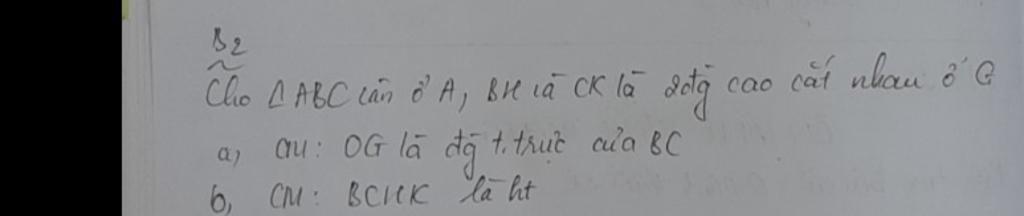 B2
Cho △ABC cân ở A, BH và CK là 2 đg̀ cao cắt nhau ở G
a, CM: OG là đg̀ t.trực của BC
b, CM: BCHK là ht